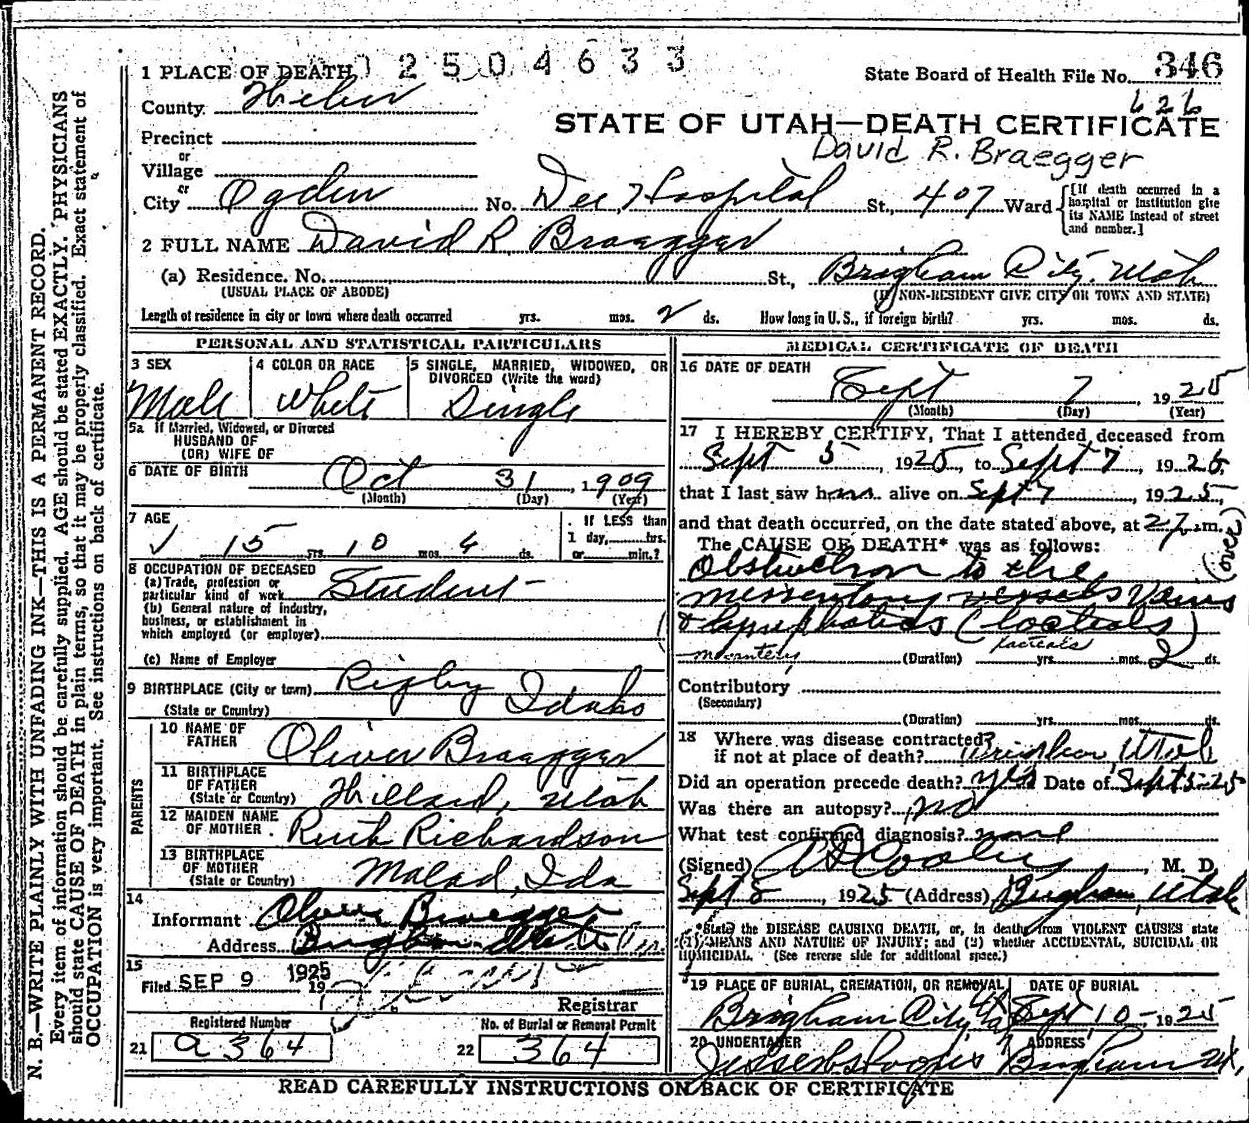 N. B.—WRITE PLAINLY WITH UNFADING INK—THIS IS A PERMANENT RECORD.
Every item of information should be carefully supplied. AGE should be stated EXACTLY. PHYSICIANS
should state CAUSE OF DEATH in plain terms, so that it may be properly classified. Exact statement of
OCCUPATION is very important. See instructions on back of certificate.
2504633
1 PLACE OF DEATH
State Board of Health File No. 346
County
626
STATE OF UTAH—DEATH CERTIFICATE
Precinct
David R. Braegger
or
Village
or
City Ogden No. Dee Hospital St., 407 Ward
[If death occurred in a hospital or institution give its NAME instead of street and number.]
2 FULL NAME David R. Braegger
(a) Residence. No. St., Brigham City, Utah
(USUAL PLACE OF ABODE) (If NON-RESIDENT GIVE CITY OR TOWN AND STATE)
Length of residence in city or town where death occurred yrs. mos. 2 ds. How long in U. S., if foreign birth? yrs. mos. ds.
PERSONAL AND STATISTICAL PARTICULARS
3 SEX Male
4 COLOR OR RACE White
5 SINGLE, MARRIED, WIDOWED, OR DIVORCED (Write the word) Single
5a If Married, Widowed, or Divorced
HUSBAND OF
(OR) WIFE OF
6 DATE OF BIRTH Oct 31, 1909
(Month) (Day) (Year)
7 AGE 15 yrs. 10 mos. 4 ds.
If LESS than
1 day, hrs.
or min.?
8 OCCUPATION OF DECEASED
(a) Trade, profession or
particular kind of work Student
(b) General nature of industry,
business, or establishment in
which employed (or employer)
(c) Name of Employer
9 BIRTHPLACE (City or town) Rigby Idaho
(State or Country)
PARENTS
10 NAME OF FATHER Oliver Braegger
11 BIRTHPLACE OF FATHER
(State or Country) Willard, Utah
12 MAIDEN NAME OF MOTHER Ruth Richardson
13 BIRTHPLACE OF MOTHER
(State or Country) Malad, Ida
14
Informant Oliver Braegger
Address
15
Filed SEP 9 1925
19
Registrar
Registered Number No. of Burial or Removal Permit
21 a364 22 364
MEDICAL CERTIFICATE OF DEATH
16 DATE OF DEATH
Sept 7, 1925
(Month) (Day) (Year)
17 I HEREBY CERTIFY, That I attended deceased from
Sept 5, 1925, to Sept 7, 1925,
that I last saw h alive on Sept 7, 1925,
and that death occurred, on the date stated above, at m.
The CAUSE OF DEATH* was as follows:
(over)
Obstruction to the
vessels Veins
& lymphatics (lacteals)
lacteals
mesentery (Duration) yrs. mos. 2 ds.
Contributory
(Secondary)
(Duration) yrs. mos. ds.
18 Where was disease contracted
if not at place of death? Brigham, Utah
Did an operation precede death? yes Date of Sept 5-25
Was there an autopsy? no
What test confirmed diagnosis? none
(Signed) M. D.
Sept 8 1925 (Address) Brigham, Utah
*State the DISEASE CAUSING DEATH, or, in deaths from VIOLENT CAUSES state
(1) MEANS AND NATURE OF INJURY; and (2) whether ACCIDENTAL, SUICIDAL OR
HOMICIDAL. (See reverse side for additional space.)
19 PLACE OF BURIAL, CREMATION, OR REMOVAL DATE OF BURIAL
Brigham City Sept 10-1925
20 UNDERTAKER ADDRESS
Brigham
READ CAREFULLY INSTRUCTIONS ON BACK OF CERTIFICATE